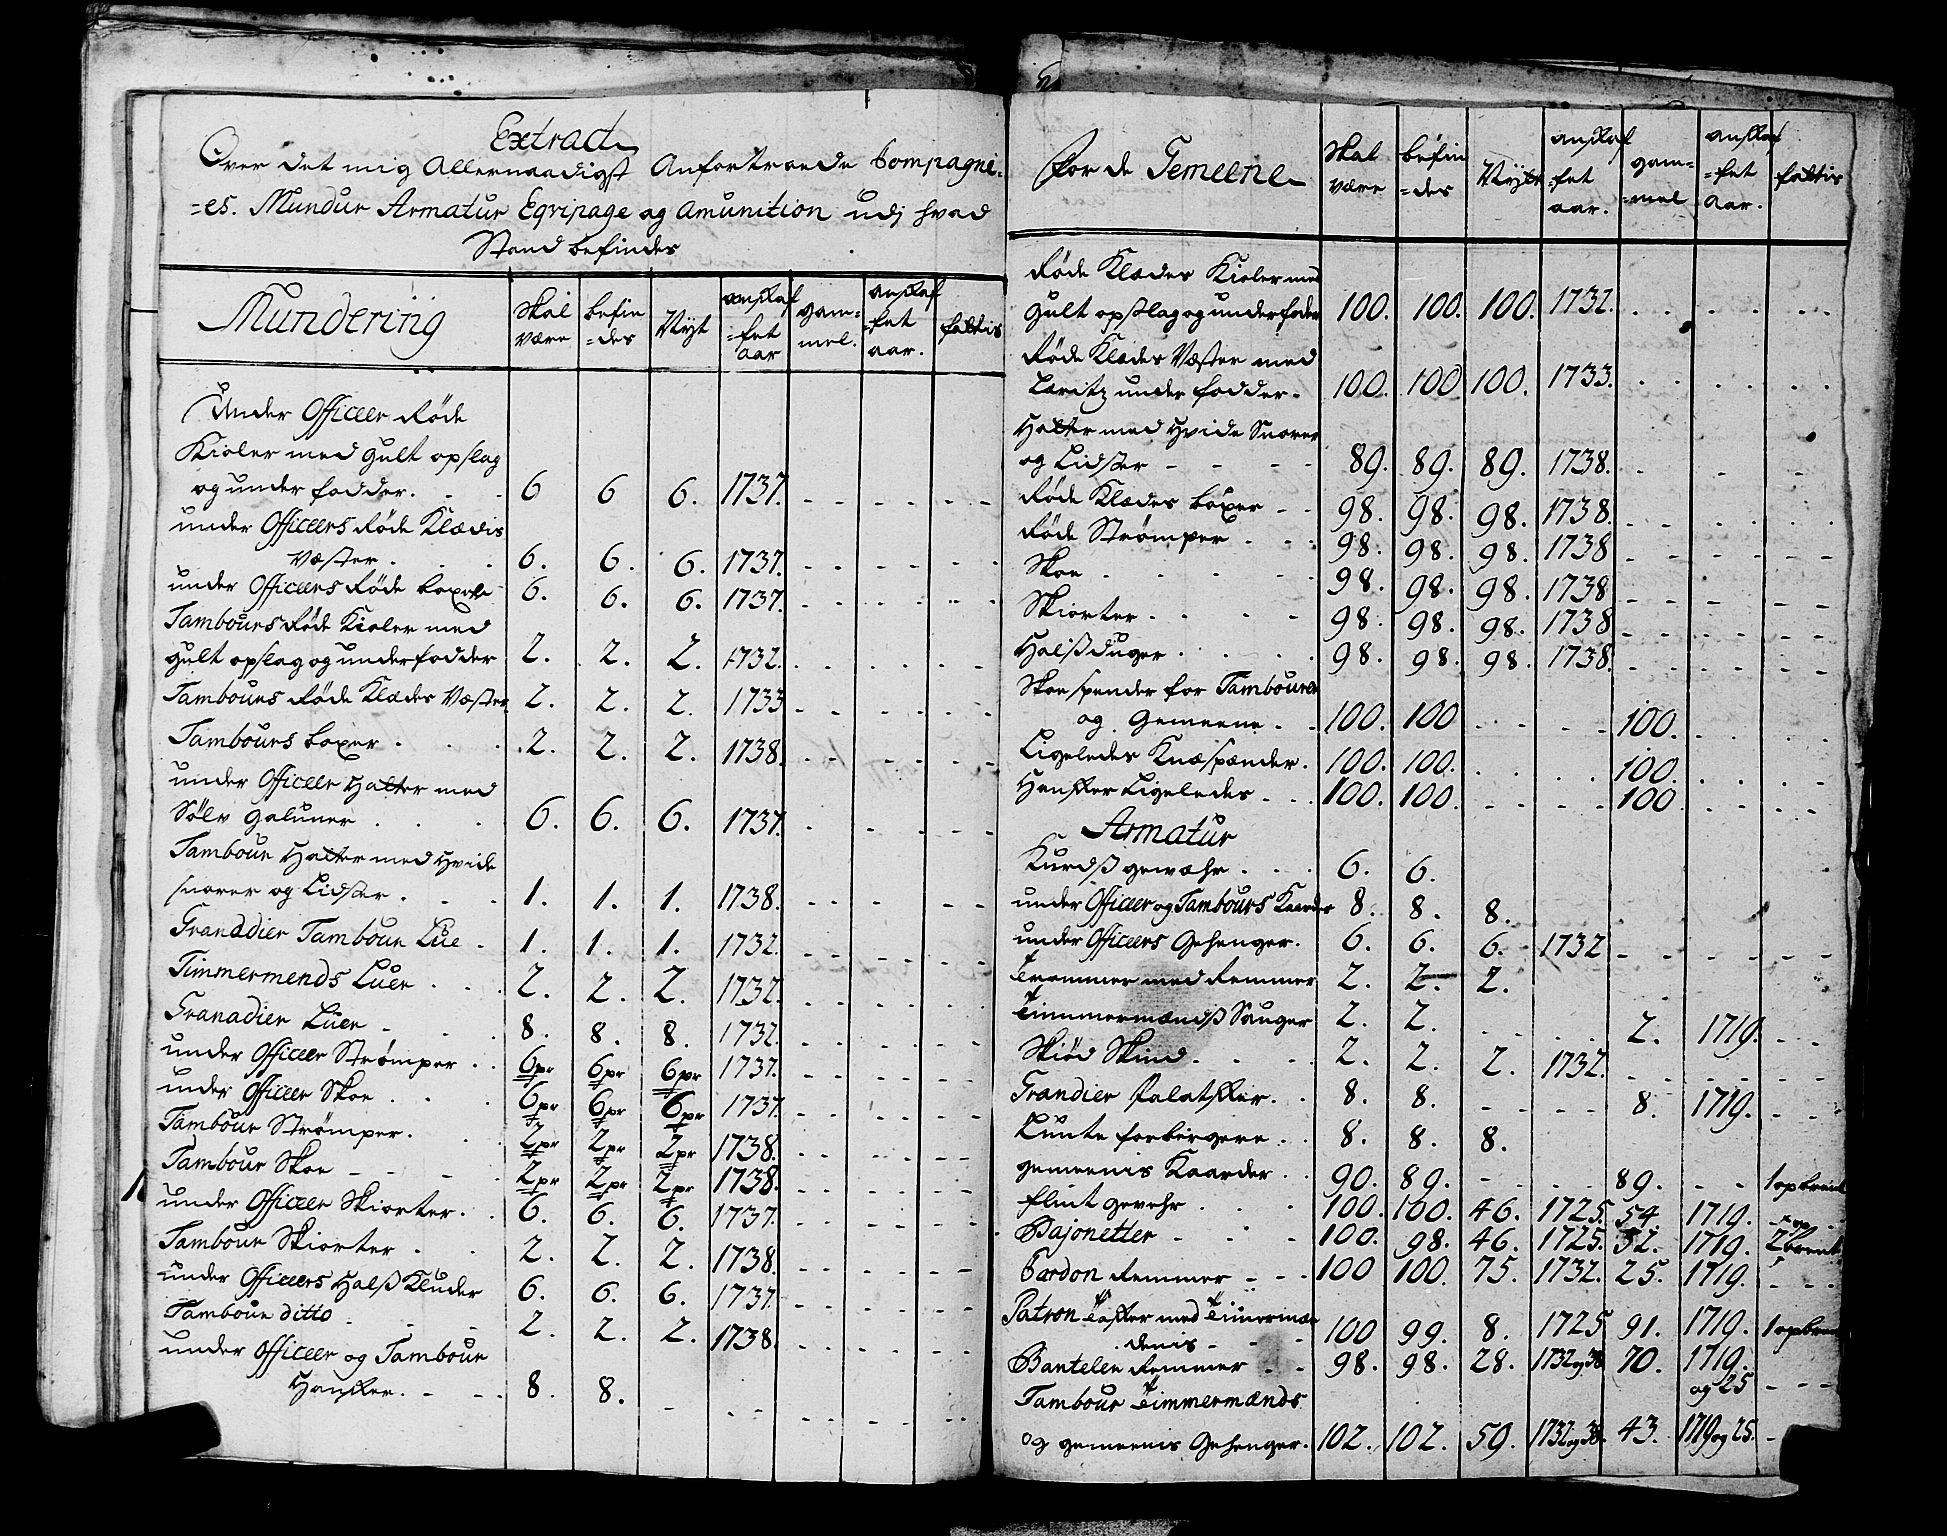 Extract
Over det mig Allernaadigst Anfortroede Compagni-
=es. Mundur Armatur Eqvipage og Amunition udj hvad
Stand befindes
Mundering | Skal være | befin=des | Nÿt | anskaf=fet aar | gam=mel. | anskaf=fet aar. | feltis
Under Officeer Røde
Kioler med gult opslag
og under fodder. - - 6 6 6. 1737. - - - - -
under Officeers Røde Klædis
Væster . . . 6. 6. 6. 1737. - - - - -
under Officeers Røde boxer 6. 6. 6. 1737. - - - - -
Tambours Røde Kioler med
gult opslag og underfodder 2. 2. 2. 1732. - - - - -
Tambours Røde Klædes Væster 2. 2. 2. 1733 - - - - -
Tambours boxer . . . 2. 2. 2. 1738. - - - - -
under Officeer Hatter med
Sølv Galuner . . . 6. 6. 6. 1737. - - - - -
Tambour Hatter med Hvide
snorer og Lidster . - - 1. 1. 1. 1738. - - - - -
Granadier Tambour Lue - 1. 1. 1. 1732. - - - - -
Timmermends Luer . . . 2. 2. 2. 1732. - - - - -
Granadier Luer - - . 8. 8. 8. 1732. - - - - -
under Officeer Strømper . . 6pr 6pr 6pr 1737. - - - - -
under Officeer Skoe . . . 6pr 6pr 6pr 1737. - - - - -
Tambour Strømper. . . 2pr 2pr 2pr 1738. - - - - -
Tambour Skoe - - - 2pr 2pr 2pr 1738. - - - - -
under Officeer Skiorter. . 6. 6. 6. 1737. - - - - -
Tambour Skiorter . . 2. 2. 2. 1738. - - - - -
under Officeers Halß Kluder 6. 6. 6. 1737. - - - - -
Tambour ditto . - - 2. 2. 2. 1738. - - - - -
under Officeer og Tambour
Hansker. - - . 8. 8. - - - - - - -
For de Gemeene | Skal være | befin=des | Nÿtt | anskaf=fet aar. | gam=mel | anskaf=fet Aar. | feltis
Røde Klædes Kioler med
Gult opslag og underfoder 100. 100. 100. 1732. . . . . .
Røde Klædes Væster med
Laritz under fodder. 100. 100 100. 1733. . . . . .
Hatter med Hvide Snorer
og Lidster - - - - 89. 89. 89. 1738. - - - -
Røde Klædes boxer - - 98. 98. 98. 1738. - - - - -
Røde Strømper - - - 98. 98. 98. 1738 - - - - -
Skoe . . . . . 98. 98. 98. 1738 - - - - -
Skiorter . . . - 98. 98. 98. 1738 - - - - -
Halßduger . . . . 98. 98. 98. 1738. - - - - -
Skoespender for Tambourer
og Gemeene - - 100. 100 - - - 100. - - - -
Ligeledes Knæspænder. 100. 100. . . . 100. - - - -
Hansker Ligeledes - - . 100. 100. - - - 100 . - - -
Armatur
Kurdß gewæhr . . . 6. 6.
under Officeer og Tambours Kaarder 8. 8. 8.
under Officeers Gehenger. 6. 6. 6. 1732 - - - - -
Trommer med Remmer 2. 2. 2.
Timmermændß Sauger 2. 2. - - - 2. 1719. - - -
Skiød Skind . . . . 2. 2. 2. 1732. - - - - -
Grandier Palatsker. . 8. 8. - - - 8. 1719. - - -
Lunte forbergere . . 8. 8. 8.
gemeenis Kaarder . . 90. 89. - - - 89. - - 1
Flint gevehr . . . . 100. 100. 46. 1725. 54 1719.
Bajonetter - - - 100. 98. 46. 1725. 52. 1719. 2
Remmer - - - 100 100. 75. 1732. 25. 1719. - - -
Patron Tasker med
100 99. 8. 1725 91. 1719. 1
Banteler Remmer - - 98. 98. 28. 1732 og 38 70. 1719. og 25 - - -
Tambour Timmermænds
og gemeenis Gehenger. 102. 102. 59. 1732 og 38. 43. 1719 og 25. -